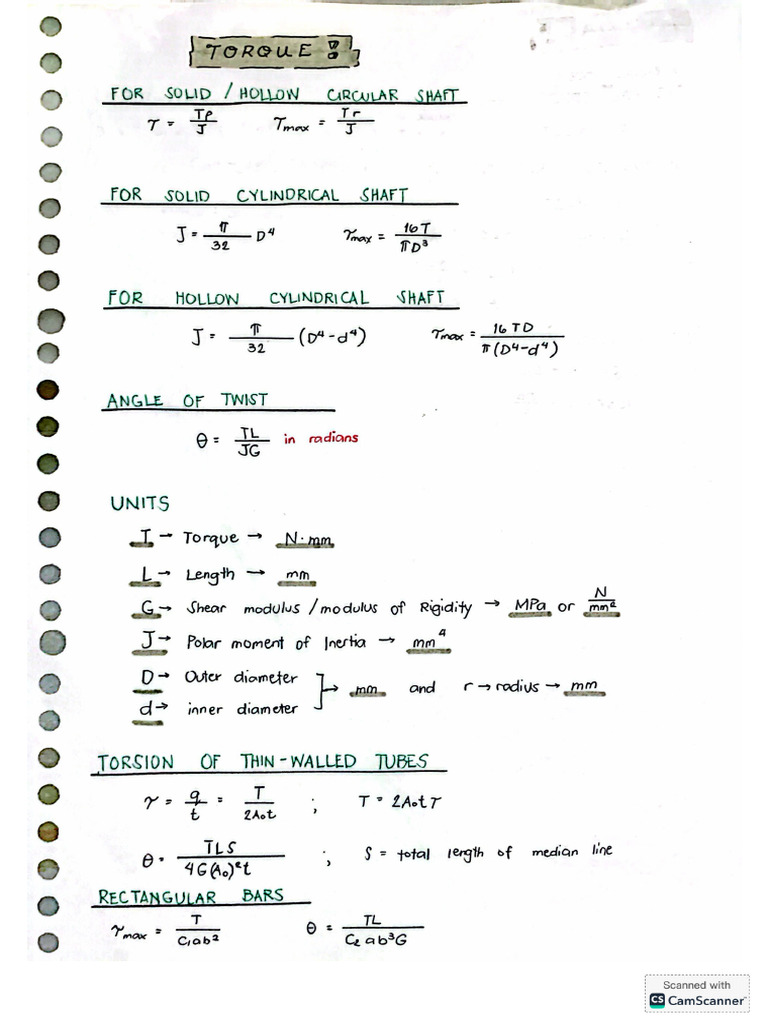 TORQUE !!
FOR SOLID / HOLLOW CIRCULAR SHAFT
τ = Tρ/J τmax = Tr/J
FOR SOLID CYLINDRICAL SHAFT
J = π/32 D⁴ τmax = 16T/πD³
FOR HOLLOW CYLINDRICAL SHAFT
J = π/32 (D⁴-d⁴) τmax = 16TD/π(D⁴-d⁴)
ANGLE OF TWIST
θ = TL/JG in radians
UNITS
T → Torque → N·mm
L → Length → mm
G → Shear modulus / modulus of Rigidity → MPa or N/mm²
J → Polar moment of Inertia → mm⁴
D → Outer diameter
d → inner diameter ] → mm and r → radius → mm
TORSION OF THIN-WALLED TUBES
τ = q/t = T/2A₀t ; T = 2A₀tτ
θ = TLS/4G(A₀)²t ; S = total length of median line
RECTANGULAR BARS
τmax = T/C₁ab² θ = TL/C₂ab³G
Scanned with
CS CamScanner